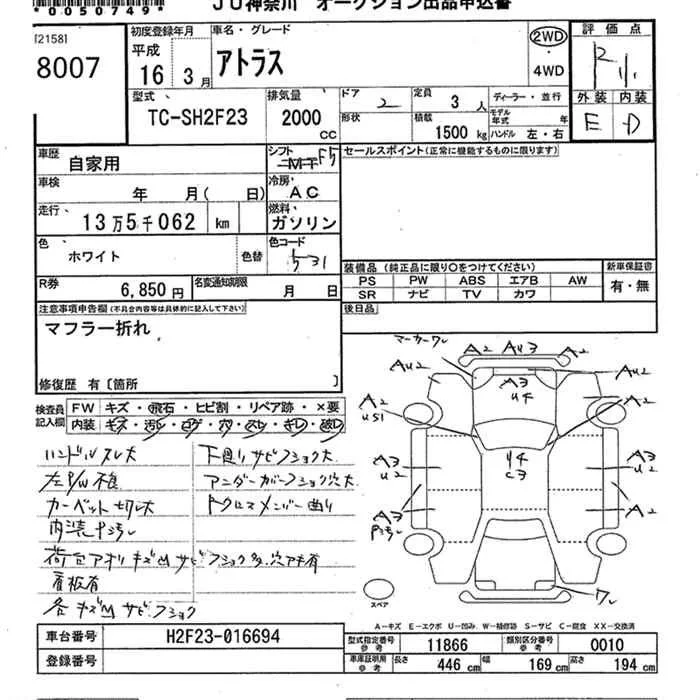 *0050749*
JU神奈川 オークション出品申込書
[2158]
8007
初度登録年月
平成
16年 3月
車名・グレード
アトラス
2WD
・
4WD
評価点
R
外装 内装
E D
型式
TC-SH2F23
排気量
2000
cc
ドア
2
定員
3人
ディーラー・並行
モデル年式 年
形状
積載
1500kg
ハンドル 左・右
車歴
自家用
シフト
MT F5
セールスポイント(正常に機能するものに限ります)
車検
年 月( 日)
冷房
AC
走行
13万5千062 km
燃料
ガソリン
色
ホワイト
色替
色コード
531
装備品(純正品に限り○をつけてください)
新車保証書
PS PW ABS エアB AW
有・無
SR ナビ TV カワ
R券
6,850円
名変通知期限
月 日
後日品
注意事項申告欄(不具合内容等は具体的に記入して下さい)
マフラー折れ
修復歴 有〔箇所 〕
検査員記入欄
FW キズ・飛石・ヒビ割・リペア跡・×要
内装 キズ・汚レ・コゲ・穴・スレ・キレ・破レ
ハンドルスレ大
下廻りサビフショク大
左P/W不良
アンダーカバーフショク穴大
カーペット切レ大
クロスメンバー曲り
内装ヤニ汚レ
荷台アオリキズMサビフショク多、穴アキ有
看板有
各キズMサビフショク
マーカーワレ
A2 AU3 A2
AU2
A3
U4
AU2
A2
US1
A2
A3
U2
Y4
C3
A3
U2
A3
A2
ワレ
スペア
A-キズ E-エクボ U-凹み W-補修跡 S-サビ C-腐食 XX-交換済
車台番号
H2F23-016694
登録番号
型式指定番号
参考
11866
類別区分番号
参考
0010
車庫証明用
参考
長さ
446 cm
幅
169 cm
高さ
194 cm